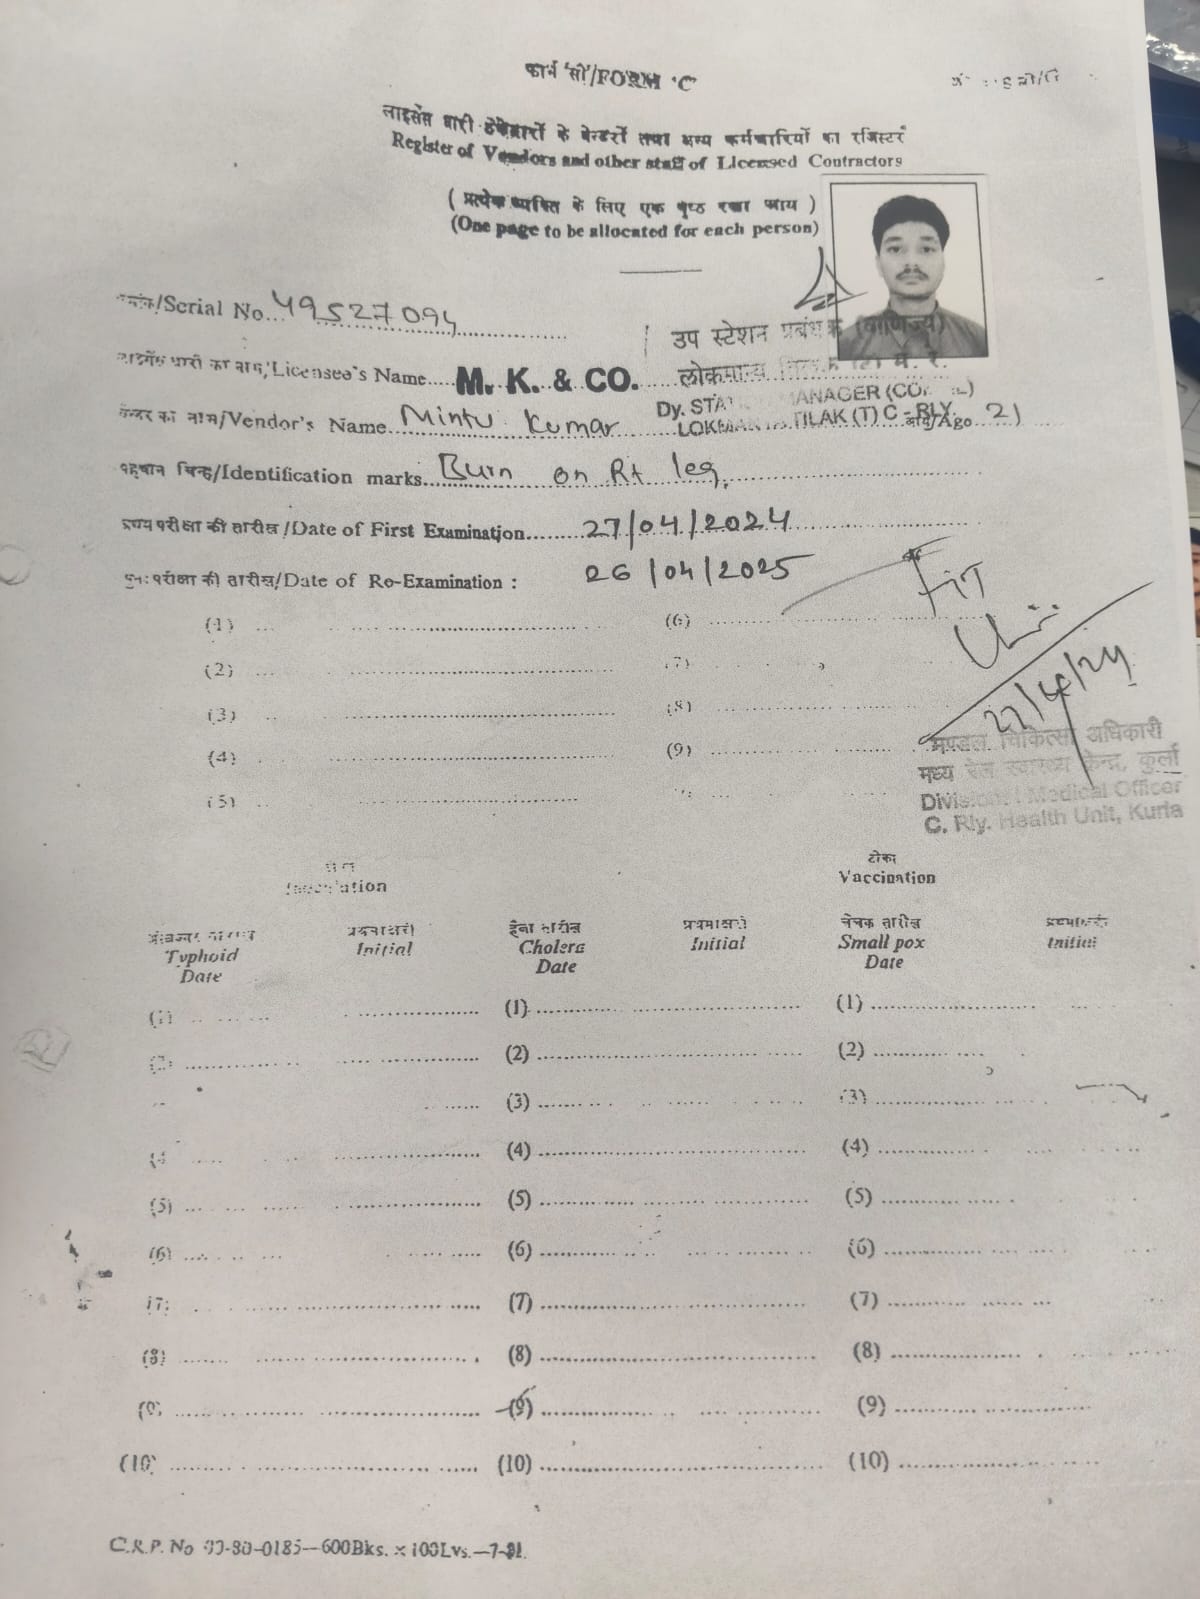 फार्म 'सी'/FORM 'C'
लाइसेंस धारी ठेकेदारों के वेन्डरों तथा अन्य कर्मचारियों का रजिस्टर
Register of Vendors and other staff of Licensed Contractors
( प्रत्येक व्यक्ति के लिए एक पृष्ठ रखा जाय )
(One page to be allocated for each person)
/Serial No....49527094
उप स्टेशन प्रबंधक (वाणिज्य)
लोकमान्य म. रे.
का नाम/Licensee's Name....M. K. & CO.
Dy. STA MANAGER (CO
LOKMAN TILAK (T) C - RLY.
का नाम/Vendor's Name Mintu Kumar /Age 21
पहचान चिन्ह/Identification marks..Burn on Rt leg.
प्रथम परीक्षा की तारीख/Date of First Examination........27/04/2024
पुनः परीक्षा की तारीख/Date of Re-Examination : 26/04/2025
FiT
(1) (6)
(2) (7)
(3) (8)
(4) (9)
(5)
मण्डल चिकित्सा अधिकारी
मध्य रेल स्वास्थ्य केन्द्र, कुर्ला
Divisional Medical Officer
C. Rly. Health Unit, Kurla
टीका
Inoculation Vaccination
हैजा तारीख चेचक तारीख
Typhoid Initial Cholera Initial Small pox Initial
Date Date Date
(1) (1) (1)
(2) (2) (2)
(3) (3)
(4 (4) (4)
(5) (5) (5)
(6) (6) (6)
(7) (7) (7)
(8) (8) (8)
(9) (9) (9)
(10) (10) (10)
C.R.P. No 0185—600Bks. × 100Lvs.—7-81.